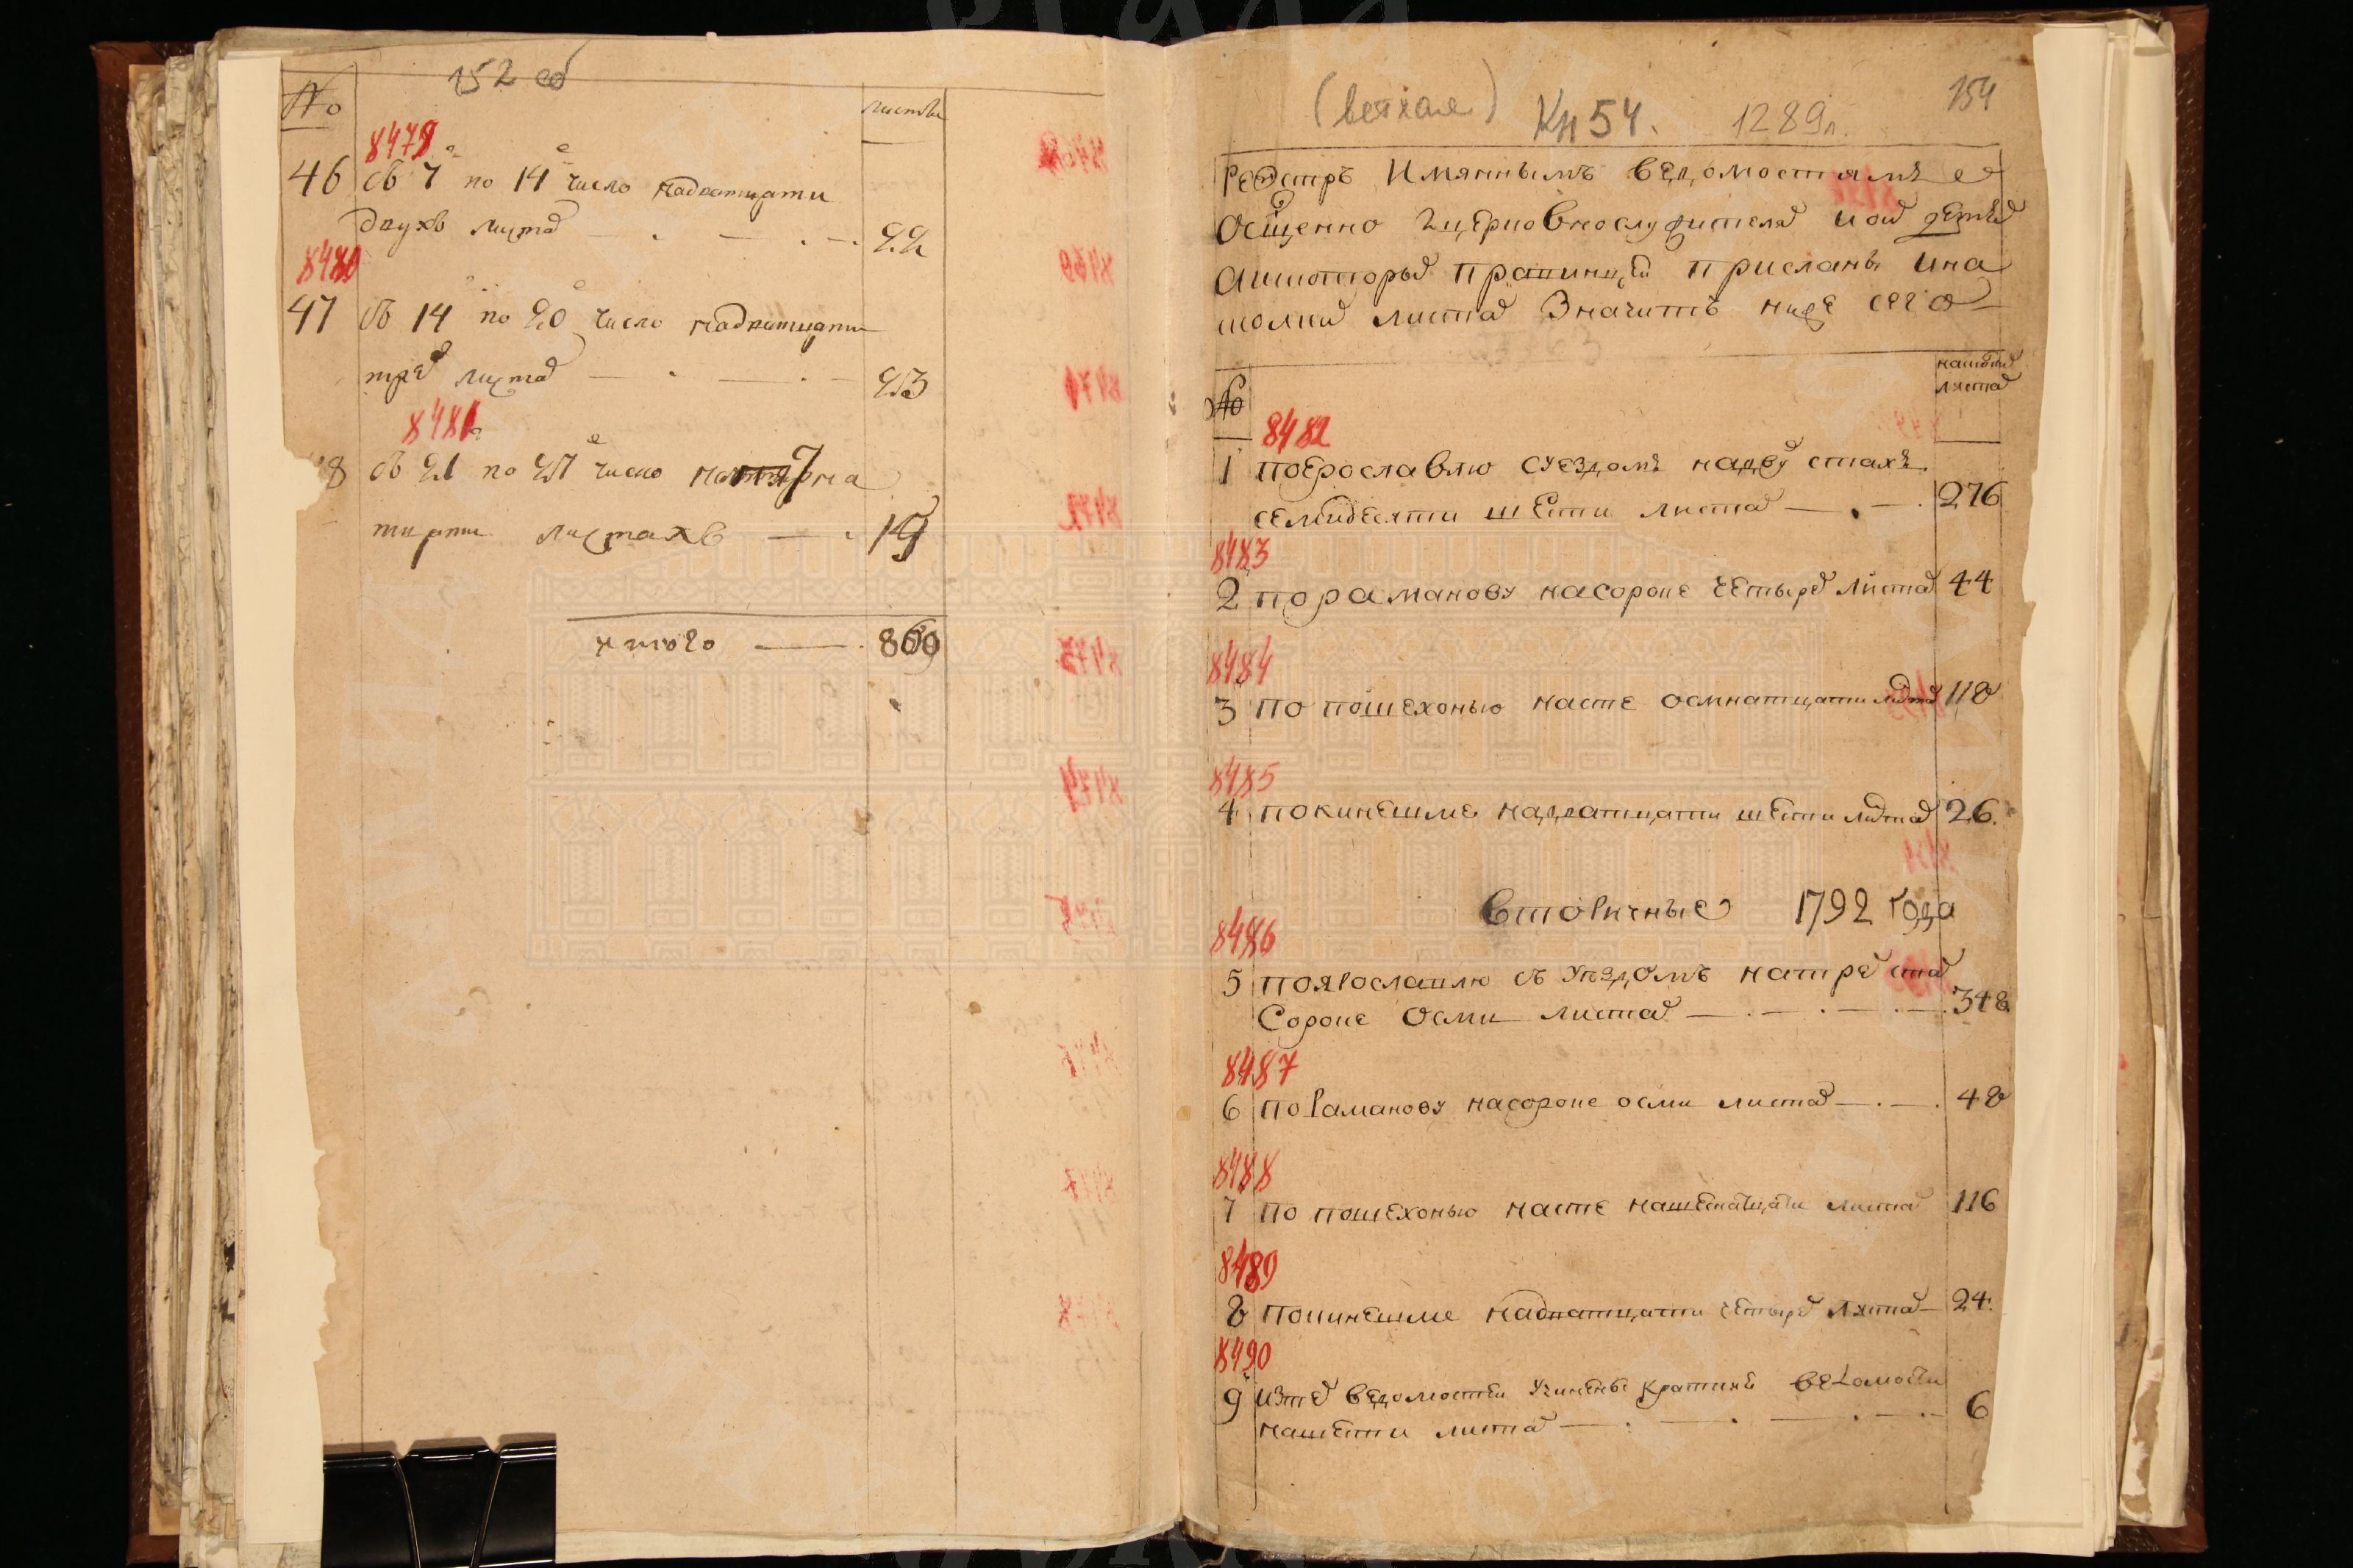 152 об
№
листы
8479
46 съ 7 по 14 число на дватцати
двухъ листах 22
8480
47 съ 14 по 20 число на дватцати
трех листах 23
8481
съ 21 по 27 число на
листахъ 19
итого 869
(ветхая) Кн 54. 1289 л. 154
Реэстръ Имяннымъ ведомостямъ о
священно и церковнослужителях и ои детях
а ис которых правинцей присланы и на
сколких листах значитъ ниже сего
№
на скольких
листах
8482
1 по Ерославлю суездомъ на двустахъ
семидесяти шести листах 276
8483
2 по Раманову на сороке четырех листах 44
8484
3 по Пошехонью на сте осмнатцати листах 118
8485
4 по Кинешме на дватцати шести листах 26.
Вторичные 1792 года
8486
5 по Ярославлю съ уѣздомъ на трех стах
Сороке осми листах 348
8487
6 по Раманову на сороке осми листах 48
8488
7 по Пошехонью на сте на шеснатцати листах 116
8489
8 по Кинешме на дватцати четырех листах 24.
8490
9 из тех ведомостей учинены краткий ведомости
на шести листах 6